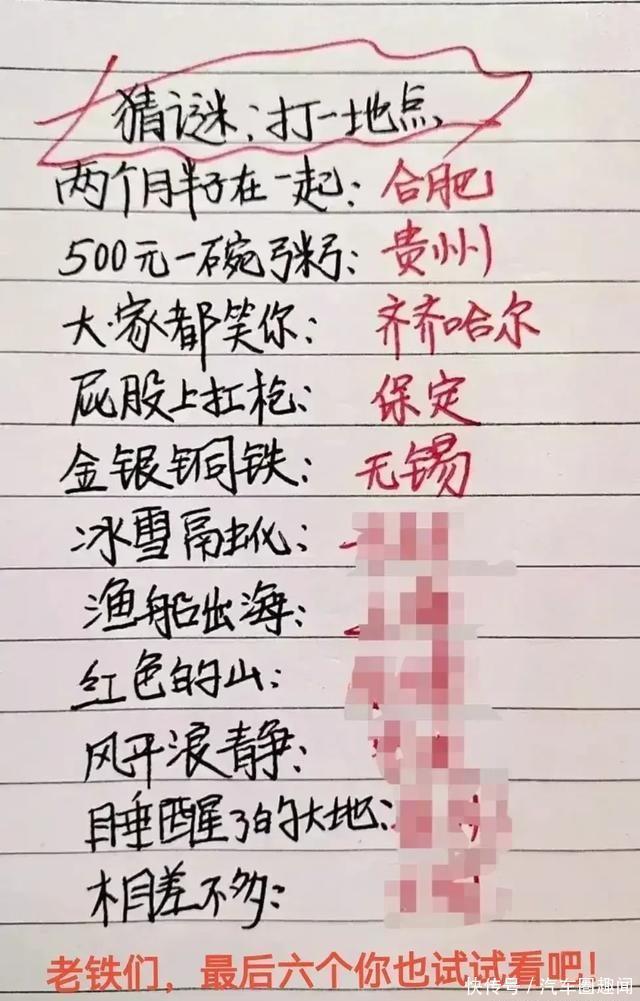 猜谜:打一地点
两个月半子在一起:合肥
500元一碗粥:贵州
大家都笑你:齐齐哈尔
屁股上扛枪:保定
金银铜铁:无锡
冰雪融化:
渔船出海:
红色的山:
风平浪静:
睡醒了的大地:
相差不多:
老铁们,最后六个你也试试看吧!
快传号/汽车图趣闻